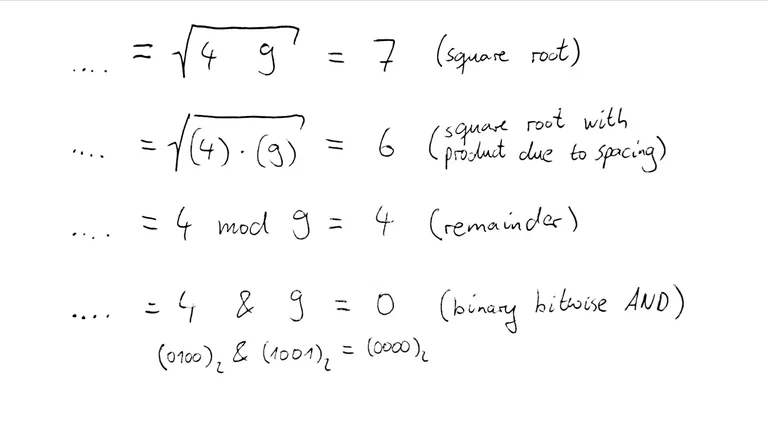 .... = √4 9 = 7 (square root)
.... = √(4) · (9) = 6 (square root with
product due to spacing)
.... = 4 mod 9 = 4 (remainder)
.... = 4 & 9 = 0 (binary bitwise AND)
(0100)₂ & (1001)₂ = (0000)₂